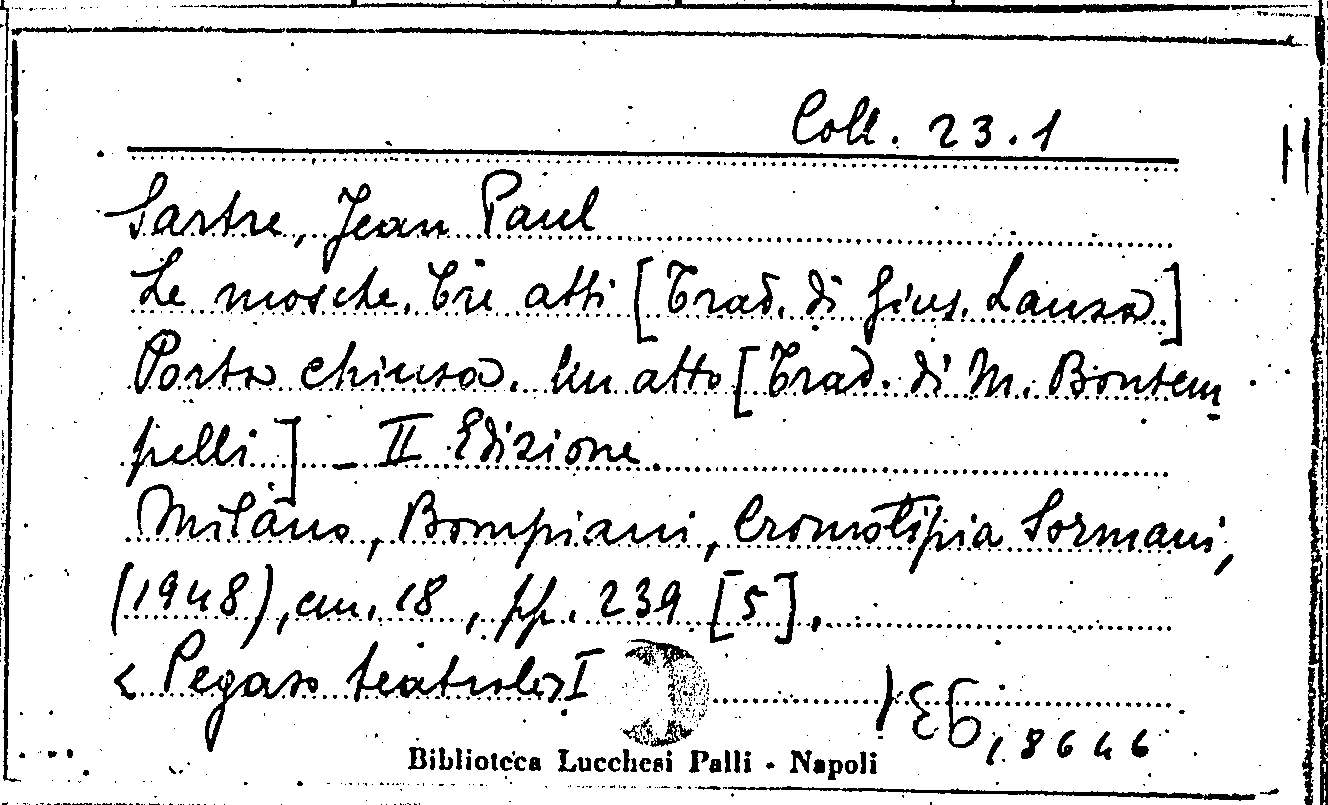 Coll. 23.1
Sartre, Jean Paul
Le mosche. Tre atti [Trad. di Gius. Lanza]
Porta chiusa. Un atto [Trad. di M. Bontem
pelli] - II Edizione.
Milano, Bompiani, Cromotipia Sormani,
(1948), cm. 18, pp. 239 [5].
<Pegaso teatrale> I
18646
Biblioteca Lucchesi Palli - Napoli